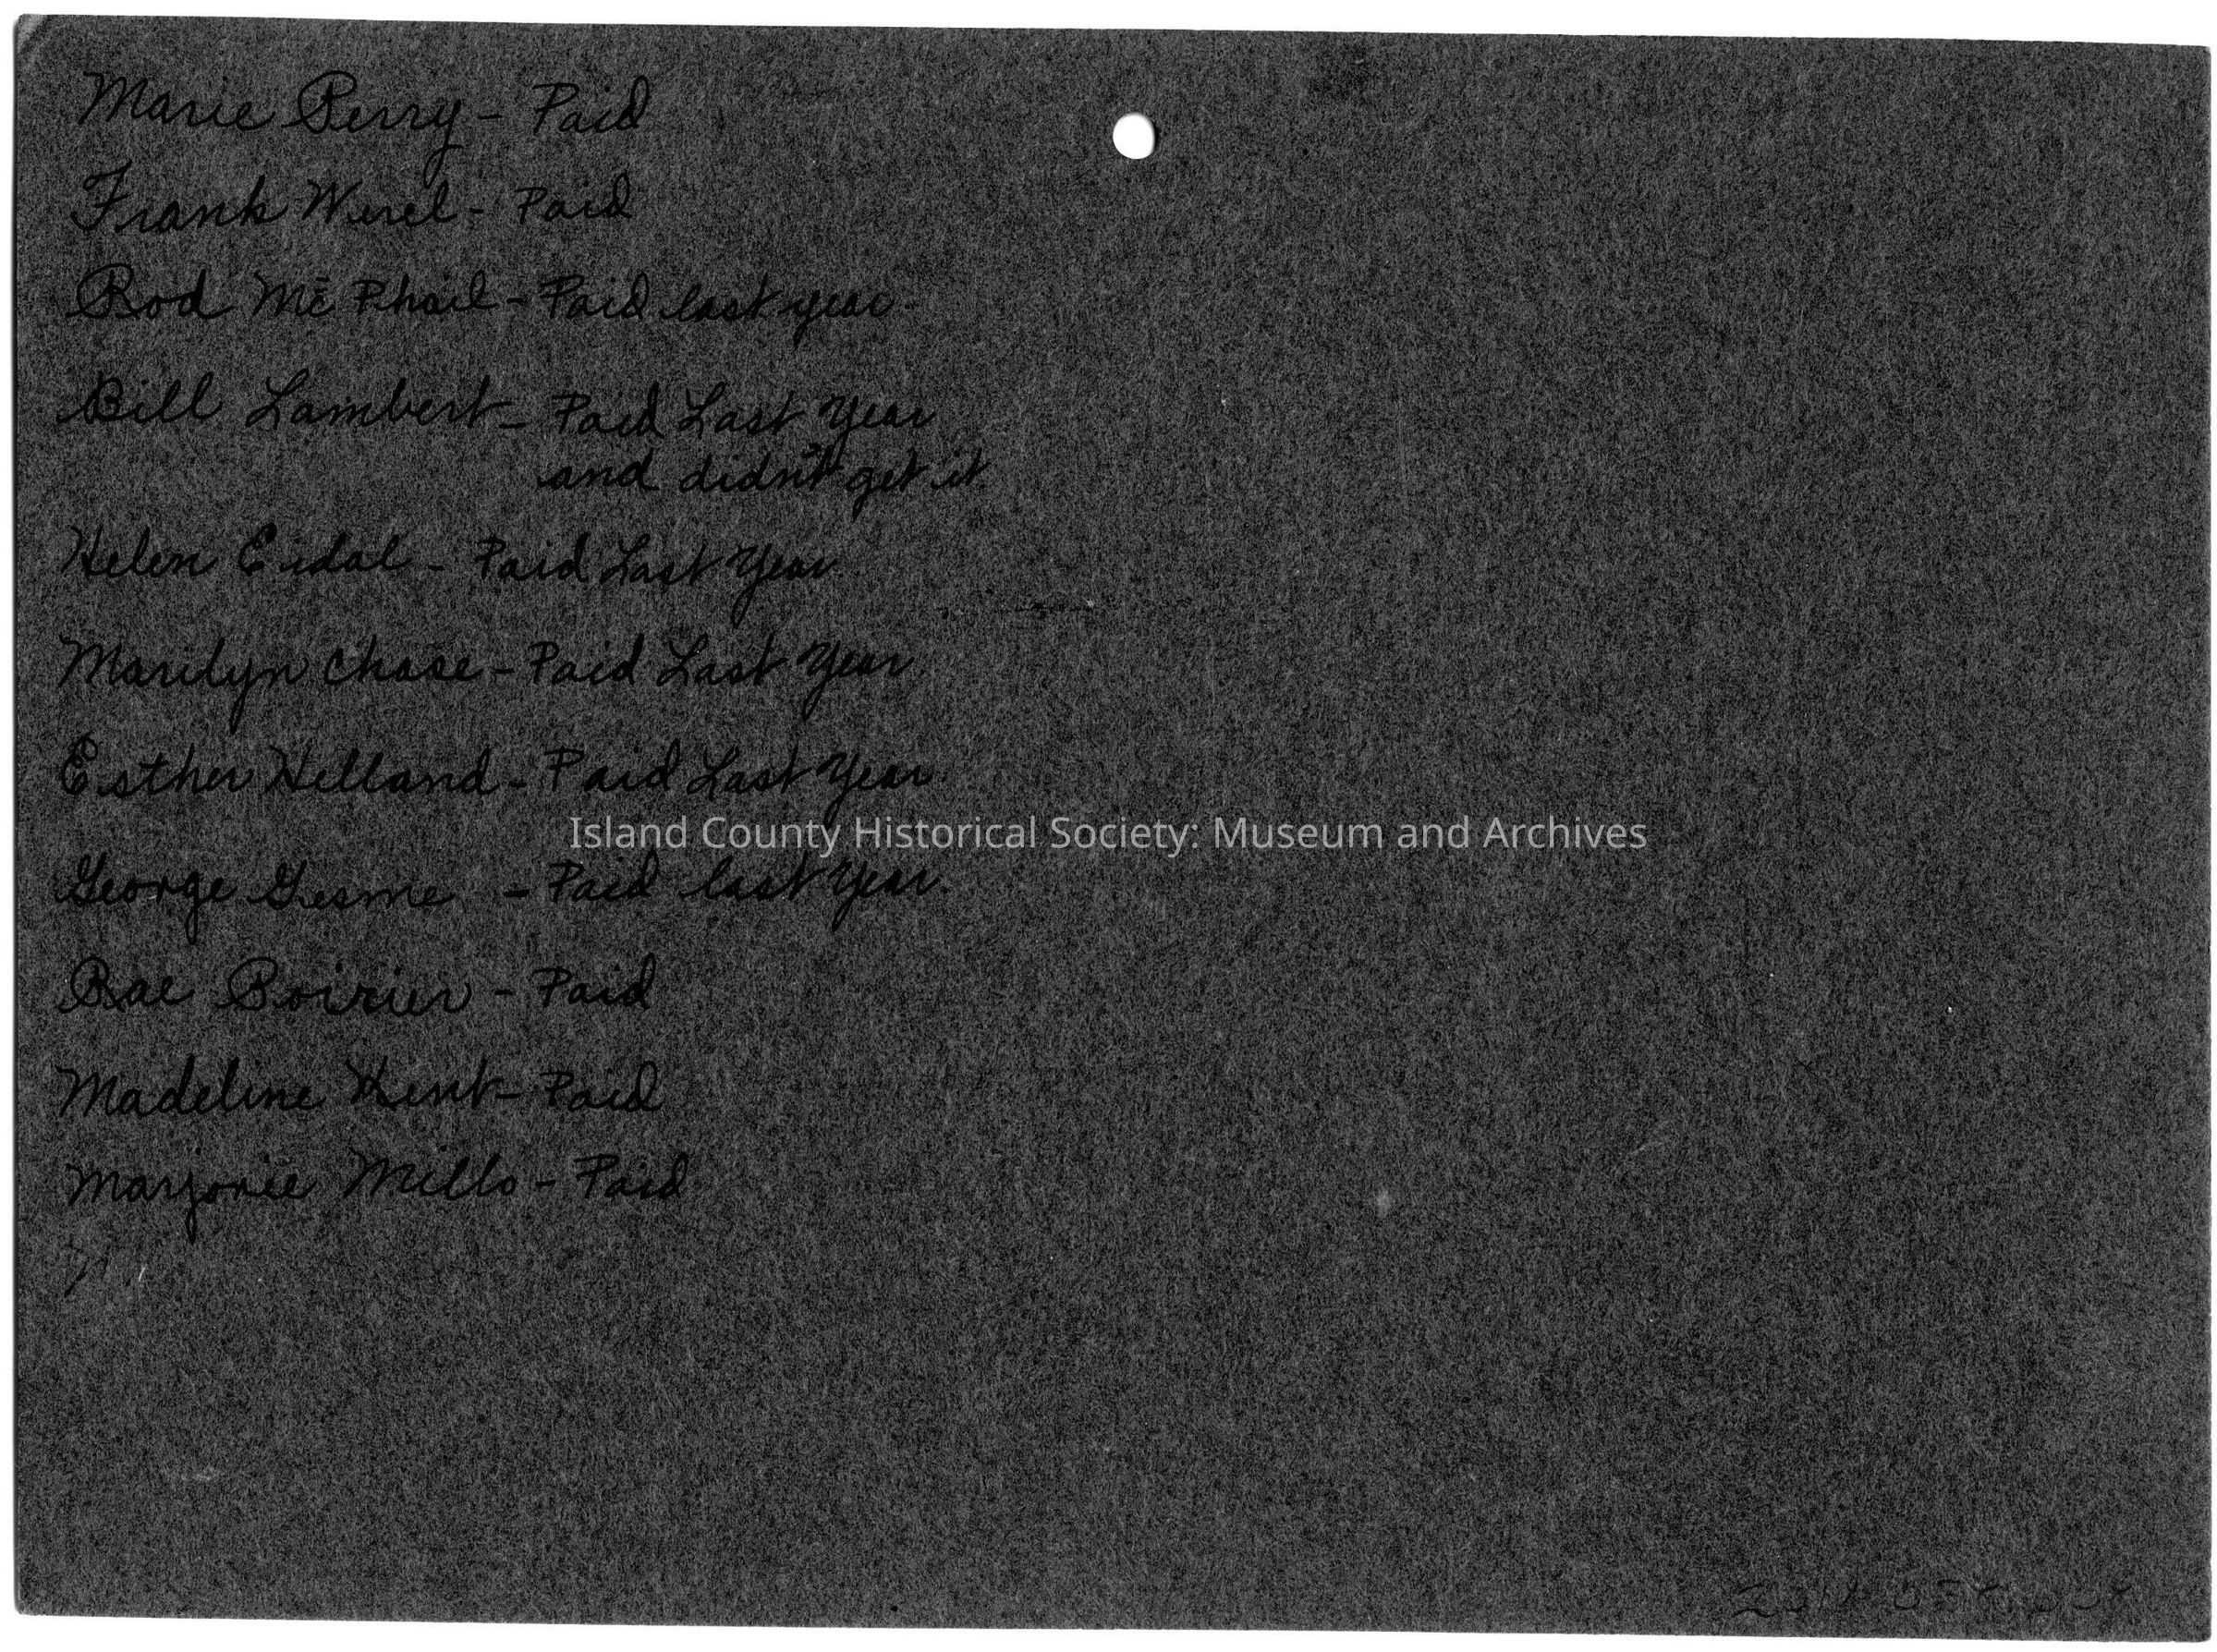 Marie Perry - Paid
Frank Wurel - Paid
Rod Mc Phail - Paid last year.
Bill Lambert - Paid Last Year
and didn't get it.
Helen Eidal - Paid Last Year.
Marilyn Chase - Paid Last Year.
Esther Helland - Paid Last Year.
Island County Historical Society: Museum and Archives
George Gesme - Paid last year.
Rae Boirier - Paid
Madeline Kent - Paid
Marjorie Mills - Paid